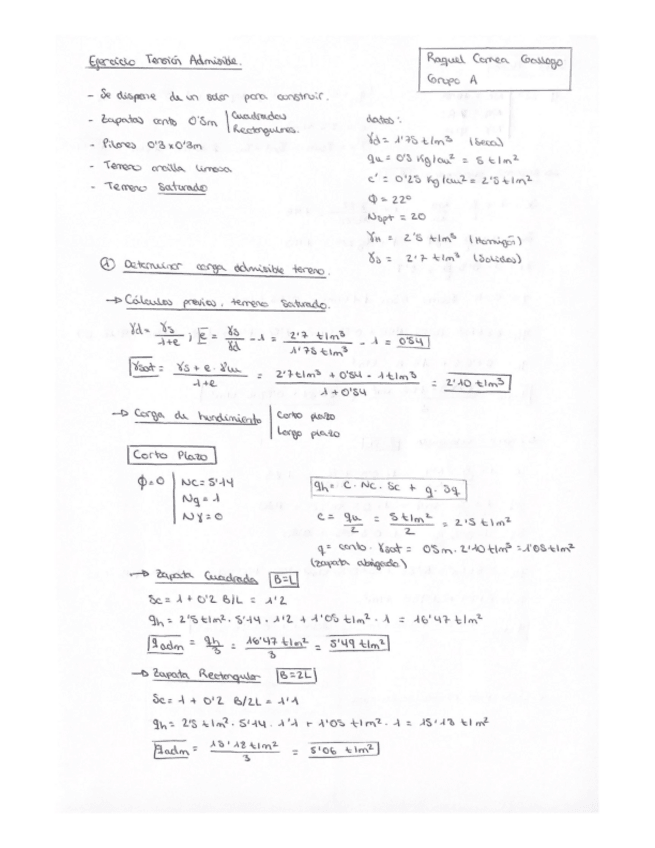 Ejercicio Tensión Admisible.
Raquel Correa Gallego
Grupo A
- Se dispone de un solar para construir.
- Zapatas canto 0'5m | Cuadradas
Rectangulares.
- Pilares 0'3 x 0'3m
- Terreno arcilla limosa
- Terreno saturado
datos:
γd = 1'75 t/m³ (Seca)
qu = 0'5 Kg/cm² = 5 t/m²
c' = 0'25 Kg/cm² = 2'5 t/m²
Φ = 22º
Nspt = 20
γH = 2'5 t/m³ (Hormigón)
γs = 2'7 t/m³ (Solidos)
① Determinar carga admisible terreno.
→ Cálculos previos, terreno saturado.
γd = γs/1+e ; e = γs/γd - 1 = 2'7 t/m³/1'75 t/m³ - 1 = 0'54
γsat = γs + e · γw/1+e = 2'7 t/m³ + 0'54 · 1 t/m³/1 + 0'54 = 2'10 t/m³
→ Carga de hundimiento | Corto plazo
Largo plazo
Corto Plazo
Φ=0 | NC = 5'14
Nq = 1
Nγ = 0
qh = C · Nc · Sc + q · Sq
c = qu/2 = 5 t/m²/2 = 2'5 t/m²
q = canto · γsat = 0'5m · 2'10 t/m³ = 1'05 t/m²
(zapata abrigada)
→ Zapata Cuadrada B=L
Sc = 1 + 0'2 B/L = 1'2
qh = 2'5 t/m² · 5'14 · 1'2 + 1'05 t/m² · 1 = 16'47 t/m²
qadm = qh/3 = 16'47 t/m²/3 = 5'49 t/m²
→ Zapata Rectangular B=2L
Sc = 1 + 0'2 B/2L = 1'1
qh = 2'5 t/m² · 5'14 · 1'1 + 1'05 t/m² · 1 = 15'18 t/m²
qadm = 15'18 t/m²/3 = 5'06 t/m²